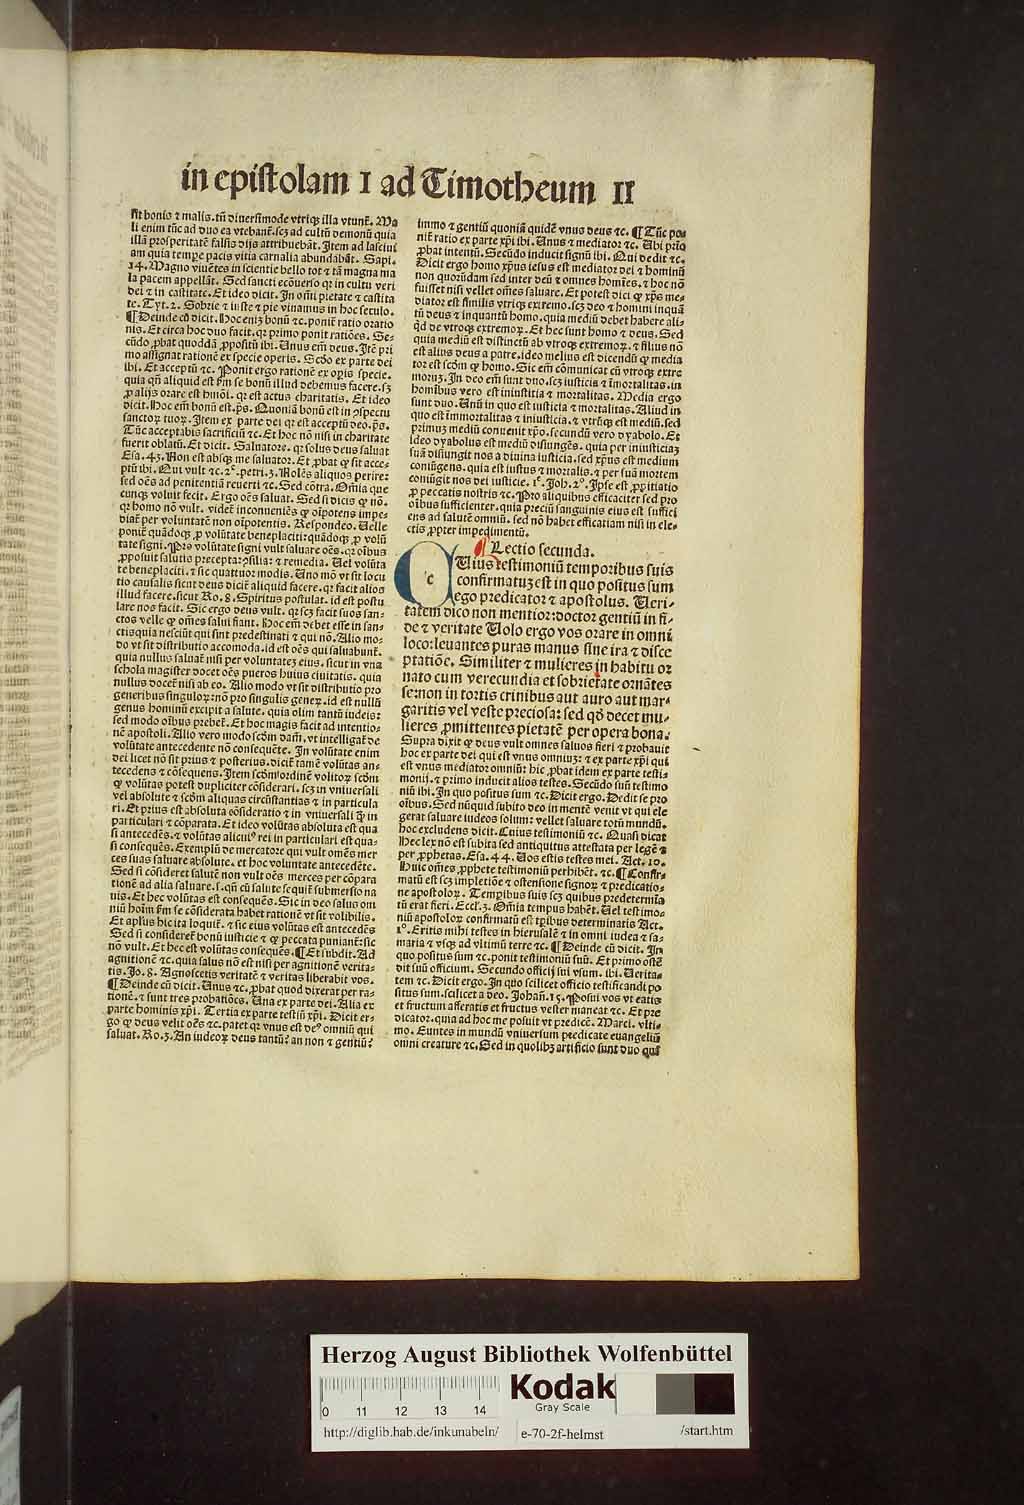 in epistolam I ad Timotheum II
sit bonis ⁊ malis. tñ diuersimode vtriqꝫ illa vtunt᷑. Ma
li enim tũc ad duo ea vtebant᷑. scꝫ ad cultũ demonũ quia
illã prosperitatẽ falsis dijs attribuebãt. Item ad lasciui
am quia tempe pacis vitia carnalia abundabãt. Sapi.
14. Magno viuẽtes in scientie bello tot ⁊ tã magna ma
la pacem appellãt. Sed sancti ecõuerso qꝛ in cultu veri
dei ⁊ in castitate. Et ideo dicit. In oĩni pietate ⁊ castita
te. Tyt. 2. Sobrie ⁊ iuste ⁊ pie viuamus in hoc seculo.
¶Deinde cũ dicit. Hoc enĩꝫ bonũ ⁊c. ponit᷑ ratio oratio
nis. Et circa hoc duo facit. qꝛ primo ponit ratiões. Se-
cũdo ꝓbat quoddã ꝓpositũ ibi. Unus em̃ deus. Itẽ pri
mo assignat rationẽ ex specie operis. Scd̃o ex parte dei
ibi. Et acceptũ ⁊c. Ponit ergo rationẽ ex oꝑis specie.
quia qñ aliquid est ẽm se bonũ illud debemus facere. sꝫ
ꝓ alijs orare est hmõi. qꝛ est actus charitatis. Et ideo
dicit. Hoc em̃ bonũ est. ps̃. Quoniã bonũ est in ↄspectu
sanctoꝝ tuoꝝ. Item ex parte dei qꝛ est acceptũ deo. ps̃.
Tũc acceptabis sacrificiũ ⁊c. Et hoc nõ nisi in charitate
fuerit oblatũ. Et dicit. Saluatore. qꝛ solus deus saluat
Esa. 43. Non est absqꝫ me saluator. Et ꝓbat ꝙ sit acce-
ptũ ibi. Qui vult ⁊c. 2ᵉ. petri. 3. Molẽs aliquos perire:
sed oẽs ad penitentiã reuerti ⁊c. Sed cõtra. Om̃ia que
cunqꝫ voluit fecit. Ergo oẽs saluat. Sed si dicis ꝙ nõ.
qꝛ homo nõ vult. videt᷑ inconueniẽs ꝙ oĩpotens impe-
diat᷑ per voluntatẽ non oĩpotentis. Respondeo. Uelle
ponit᷑ quãdoqꝫ ꝓ volũtate beneplaciti: quãdoqꝫ ꝓ volũ
tate signi. Pro volũtate signi vult saluare oẽs. qꝛ oĩbus
ꝓposuit salutis precepta: ↄsilia: ⁊ remedia. Uel volũta
te beneplaciti. ⁊ sic quattuor modis. Uno mõ vt sit locu
tio causalis sicut deus dicit᷑ aliquid facere. qꝛ facit alios
illud facere. sicut Ro. 8. Spiritus postulat. id est postu
lare nos facit. Sic ergo deus vult. qꝛ scꝫ facit suos san-
ctos velle ꝙ om̃es salui fiant. Hoc em̃ debet esse in san-
ctis quia nesciũt qui sint predestinati ⁊ qui nõ. Alio mo-
do vt sit distributio accomoda. id est oẽs qui saluabunt᷑.
quia nullus saluat᷑ nisi per voluntateꝫ eius. sicut in vna
schola magister docet oẽs pueros huius ciuitatis. quia
nullus docet᷑ nisi ab eo. Alio modo vt sit distributio pro
generibus singuloꝝ: nõ pro singulis geneꝝ. id est nullũ
genus hominũ excipit a salute. quia olim tantũ iudeis:
sed modo oĩbus prebet᷑. Et hoc magis facit ad intentio-
nẽ apostoli. Alio vero modo scd̃m dam̃. vt intelligat᷑ de
volũtate antecedente nõ consequẽte. In volũtate enim
dei licet nõ sit prius ⁊ posterius. dicit᷑ tamẽ volũtas an-
tecedens ⁊ cõsequens. Item scd̃m ordinẽ volitoꝝ scd̃m
ꝙ volũtas potest dupliciter cõsiderari. scꝫ in vniuersali
vel absolute ⁊ scd̃m aliquas circũstantias ⁊ in particula
ri. Et prius est absoluta cõsideratio ⁊ in vniuersali ꝗ̃ in
particulari ⁊ cõparata. Et ideo volũtas absoluta est qua
si antecedẽs. ⁊ volũtas alicuiꝰ rei in particulari est qua-
si consequẽs. Exemplũ de mercatore qui vult om̃es mer
ces suas saluare absolute. et hoc voluntate antecedẽte.
Sed si cõsideret salutẽ non vult oẽs merces per cõpara
tionẽ ad alia saluare. s. qñ cũ salute sequit᷑ submersio na
uis. Et hec volũtas est consequẽs. Sic in deo salus om
niũ hoĩm ẽm se cõsiderata habet rationẽ vt sit volibilis.
Et apl̃us hic ita loquit᷑. ⁊ sic eius volũtas est antecedẽs
Sed si consideret᷑ bonũ iusticie ⁊ ꝙ peccata puniant᷑: sic
nõ vult. Et hec est volũtas consequẽs. ¶Et subdit. Ad
agnitionẽ ⁊c. quia salus nõ est nisi per agnitionẽ verita-
tis. Jo. 8. Agnoscetis veritatẽ ⁊ veritas liberabit vos.
¶Deinde cũ dicit. Unus ⁊c. ꝓbat quod dixerat per ra-
tionẽ. ⁊ sunt tres probatiões. Una ex parte dei. Alia ex
parte hominis xp̃i. Tertia ex parte testiũ xp̃i. Dicit er-
go ꝙ deus velit oẽs ⁊c. patet qꝛ vnus est deꝰ omniũ qui
saluat. Ro. 3. An iudeoꝝ deus tantũ? an non ⁊ gentiũ?
immo ⁊ gentiũ quoniã quidẽ vnus deus ⁊c. ¶Tũc po-
nit᷑ ratio ex parte xp̃i ibi. Unus ⁊ mediator ⁊c. Ubi prĩo
ꝓbat intentũ. Secũdo inducit signũ ibi. Qui dedit ⁊c.
Dicit ergo homo xp̃us iesus est mediator dei ⁊ hominũ
non quorũdam sed inter deũ ⁊ omnes homĩes. ⁊ hoc nõ
fuisset nisi vellet om̃es saluare. Et potest dici ꝙ xp̃s me-
diator est similis vtriqꝫ extremo. scꝫ deo ⁊ homini inquã
tũ deus ⁊ inquantũ homo. quia mediũ debet habere ali-
qͥd de vtroqꝫ extremoꝝ. Et hec sunt homo ⁊ deus. Sed
quia mediũ est distinctũ ab vtroqꝫ extremoꝝ. ⁊ filius nõ
est alius deus a patre. ideo melius est dicendũ ꝙ media
tor est scd̃m ꝙ homo. Sic em̃ comunicat cũ vtroqꝫ extre
moruꝫ. In deo em̃ sunt duo. scꝫ iusticia ⁊ ĩmortalitas. in
hominibus vero est iniustitia ⁊ mortalitas. Media ergo
sunt duo. Unũ in quo est iusticia ⁊ mortalitas. Aliud in
quo est immortalitas ⁊ iniusticia. ⁊ vtrũqꝫ est mediũ. sed
primuꝫ mediũ conuenit xp̃o. secundũ vero dyabolo. Et
ideo dyabolus est mediũ disiungẽs. quia per iniusticiaꝫ
suã disiungit nos a diuina iusticia. sed xp̃us est medium
coniũgens. quia est iustus ⁊ mortalis. ⁊ per suã mortem
coniũgit nos dei iusticie. 1ᵉ. Joh. 2°. Ipse est ꝓpitiatio
ꝓ peccatis nostris ⁊c. Pro aliquibus efficaciter sed pro
oĩbus sufficienter. quia preciũ sanguinis eius est suffici
ens ad salutẽ omniũ. sed nõ habet efficatiam nisi in ele-
ctis ꝓpter impedimentũ.
¶Lectio secunda.
c
Uius testimoniũ temporibus suis
confirmatuꝫ est in quo positus sum
ego predicator ⁊ apostolus. Ueri-
tatem dico non mentior: doctor gentiũ in fi-
de ⁊ veritate Uolo ergo vos orare in omni
loco: leuantes puras manus sine ira ⁊ disce
ptatiõe. Similiter ⁊ mulieres in habitu or
nato cum verecundia et sobrietate ornãtes
se: non in tortis crinibus aut auro aut mar-
garitis vel veste preciosa: sed qd̃ decet mu-
lieres ꝓmittentes pietatẽ per opera bona.
Supra dixit ꝙ deus vult omnes saluos fieri ⁊ probauit
hoc ex parte dei qui est vnus omniuꝫ: ⁊ ex parte xp̃i qui
est vnus mediator omniũ: hic ꝓbat idem ex parte testi-
monij. ⁊ primo inducit alios testes. Secũdo suũ testimo
niũ ibi. In quo positus sum ⁊c. Dicit ergo. Dedit se pro
oĩbus. Sed nũquid subito deo in mentẽ venit vt qui ele
gerat saluare iudeos solum: vellet saluare totũ mundũ.
hoc excludens dicit. Cuius testimoniũ ⁊c. Quasi dicat
Hec lex nõ est subita sed antiquitus attestata per legẽ ⁊
per ꝓphetas. Esa. 44. Uos estis testes mei. Act. 10.
Huic om̃es ꝓphete testimoniũ perhibẽt. ⁊c. ¶Confir-
matũ est scꝫ impletiõe ⁊ ostensione signoꝝ ⁊ predicatio-
ne apostoloꝝ. Temp̃ibus suis scꝫ quibus predetermĩa
tũ erat fieri. Eccl̃. 3. Om̃ia tempus habẽt. Uel testimo-
niũ apostoloꝝ confirmatũ est tp̃ibus determinatis Act.
1°. Eritis mihi testes in hierusalẽ ⁊ in omni iudea ⁊ sa-
maria ⁊ vsqꝫ ad vltimũ terre ⁊c. ¶Deinde cũ dicit. In
quo positus sum ⁊c. ponit testimoniũ suũ. Et primo ostẽ
dit suũ officium. Secundo officij sui vsum. ibi. Uerita-
tem ⁊c. Dicit ergo. In quo scilicet officio testificandi po
situs sum. scilicet a deo. Johañ. 15. Posui vos vt eatis
et fructum afferatis et fructus vester maneat ⁊c. Et pre
dicator. quia ad hoc me posuit vt predicẽ. Marci. vlti-
mo. Euntes in mundũ vniuersum predicate euangeliũ
omni creature ⁊c. Sed in quolibꝫ artificio sunt duo qui
Herzog August Bibliothek Wolfenbüttel
0 11 12 13 14
Kodak
Gray Scale
http://diglib.hab.de/inkunabeln/ e-70-2f-helmst /start.htm